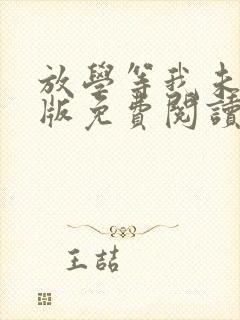 放學等我未
版免費閱讀
王喆